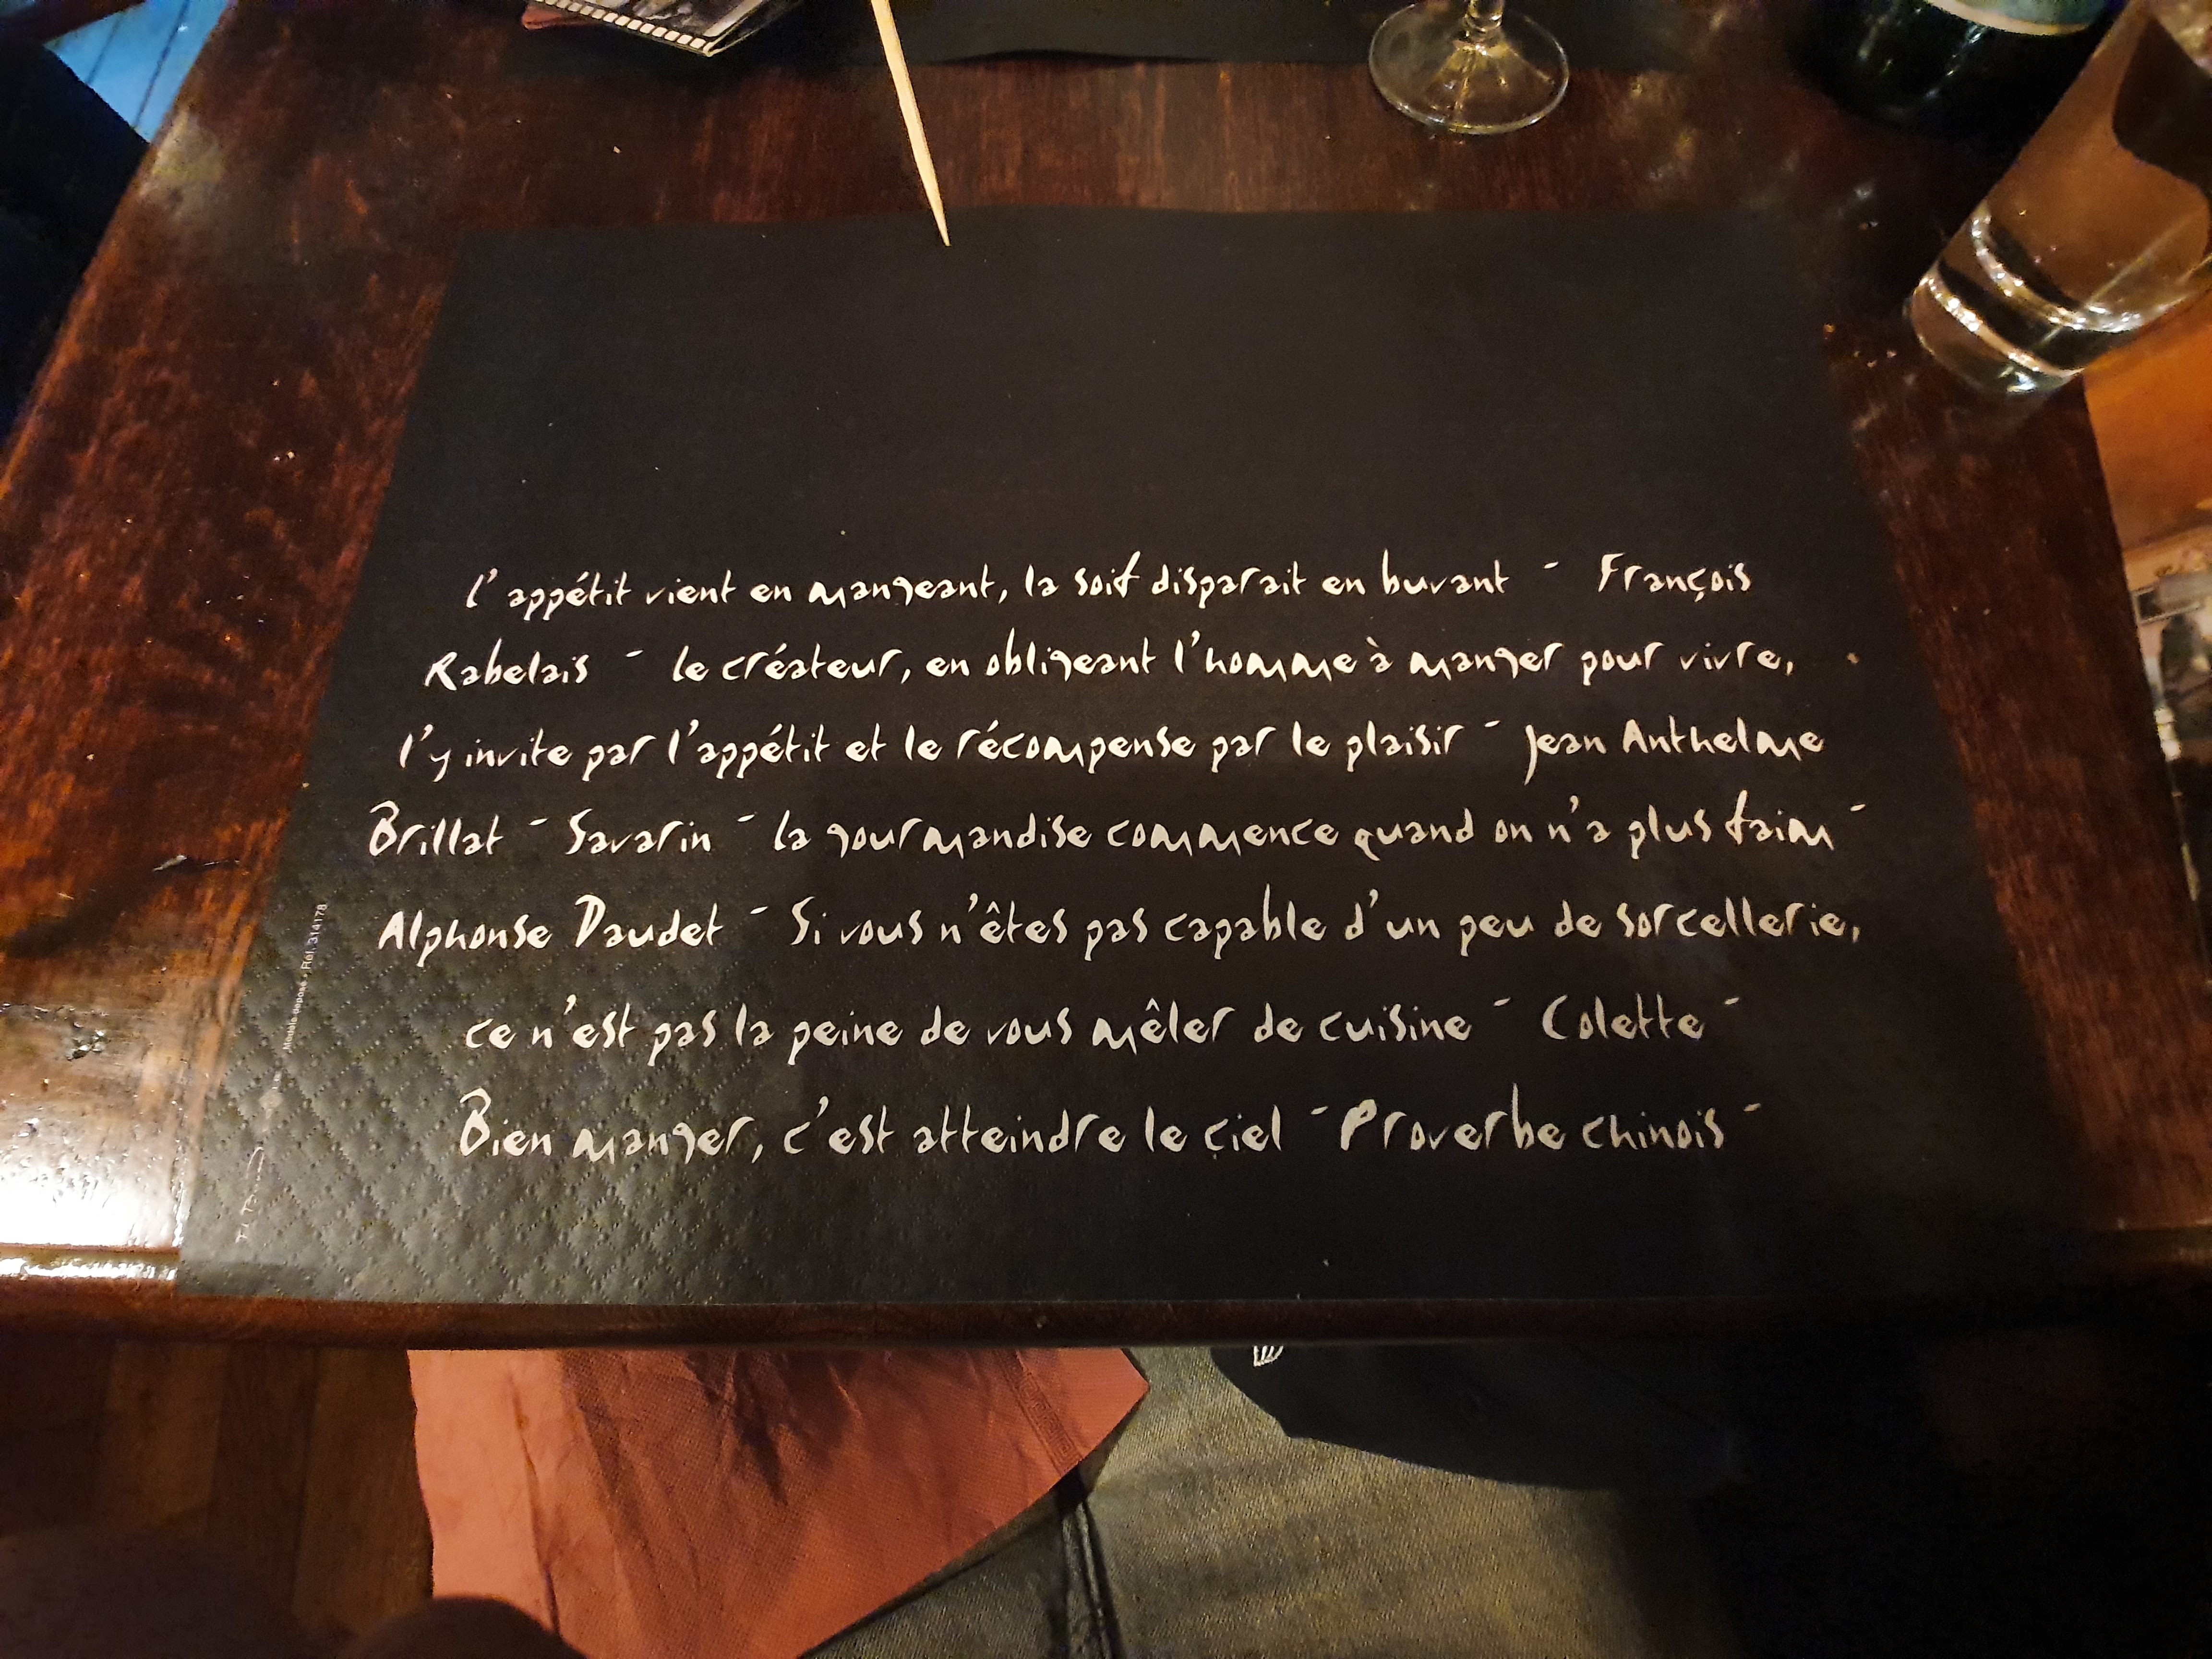 l'appétit vient en mangeant, la soif disparait en buvant - François
Rabelais - le créateur, en obligeant l'homme à manger pour vivre,
l'y invite par l'appétit et le récompense par le plaisir - Jean Anthelme
Brillat - Savarin - la gourmandise commence quand on n'a plus faim -
Alphonse Daudet - Si vous n'êtes pas capable d'un peu de sorcellerie,
ce n'est pas la peine de vous mêler de cuisine - Colette -
Bien manger, c'est atteindre le çiel - Proverbe chinois -
Modèle déposé - Réf. 314178